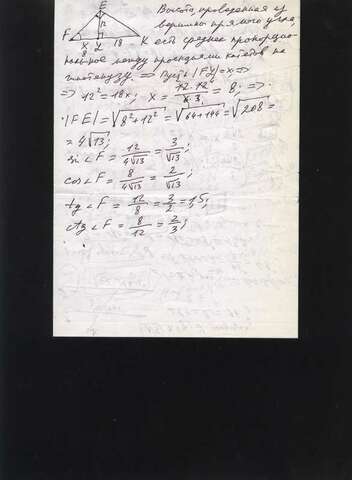 E
Высота, проведенная из
вершины прямого угла,
F X Y 18 K есть среднее пропорцио-
8
нальное между проекциями катетов на
гипотенузу. ⇒ Пусть |FY| = x ⇒
⇒ 12² = 18x; x = 12·12 / 6·3 = 8; ⇒
|FE| = √8²+12² = √64+144 = √208 =
= 4√13;
sin∠F = 12/4√13 = 3/√13;
cos∠F = 8/4√13 = 2/√13;
tg∠F = 12/8 = 3/2 = 1,5;
ctg∠F = 8/12 = 2/3;